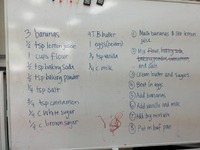 3 bananas
½ tsp lemon juice
1 cups flour
½ tsp baking soda
½ tsp baking powder
¼ tsp salt
½ tsp cinnamon
½ c. white sugar
¼ c brown sugar
4 T. Butter
1 eggs (protein)
½ tsp vanilla
¼ c. milk
① Mash bananas & the lemon juice
② Mix flour, baking soda,
and salt
③ Cream butter and sugars
④ Beat in egg
⑤ Add bananas
⑥ Add vanilla and milk
⑦ Add dry mixture
⑧ Put in loaf pan